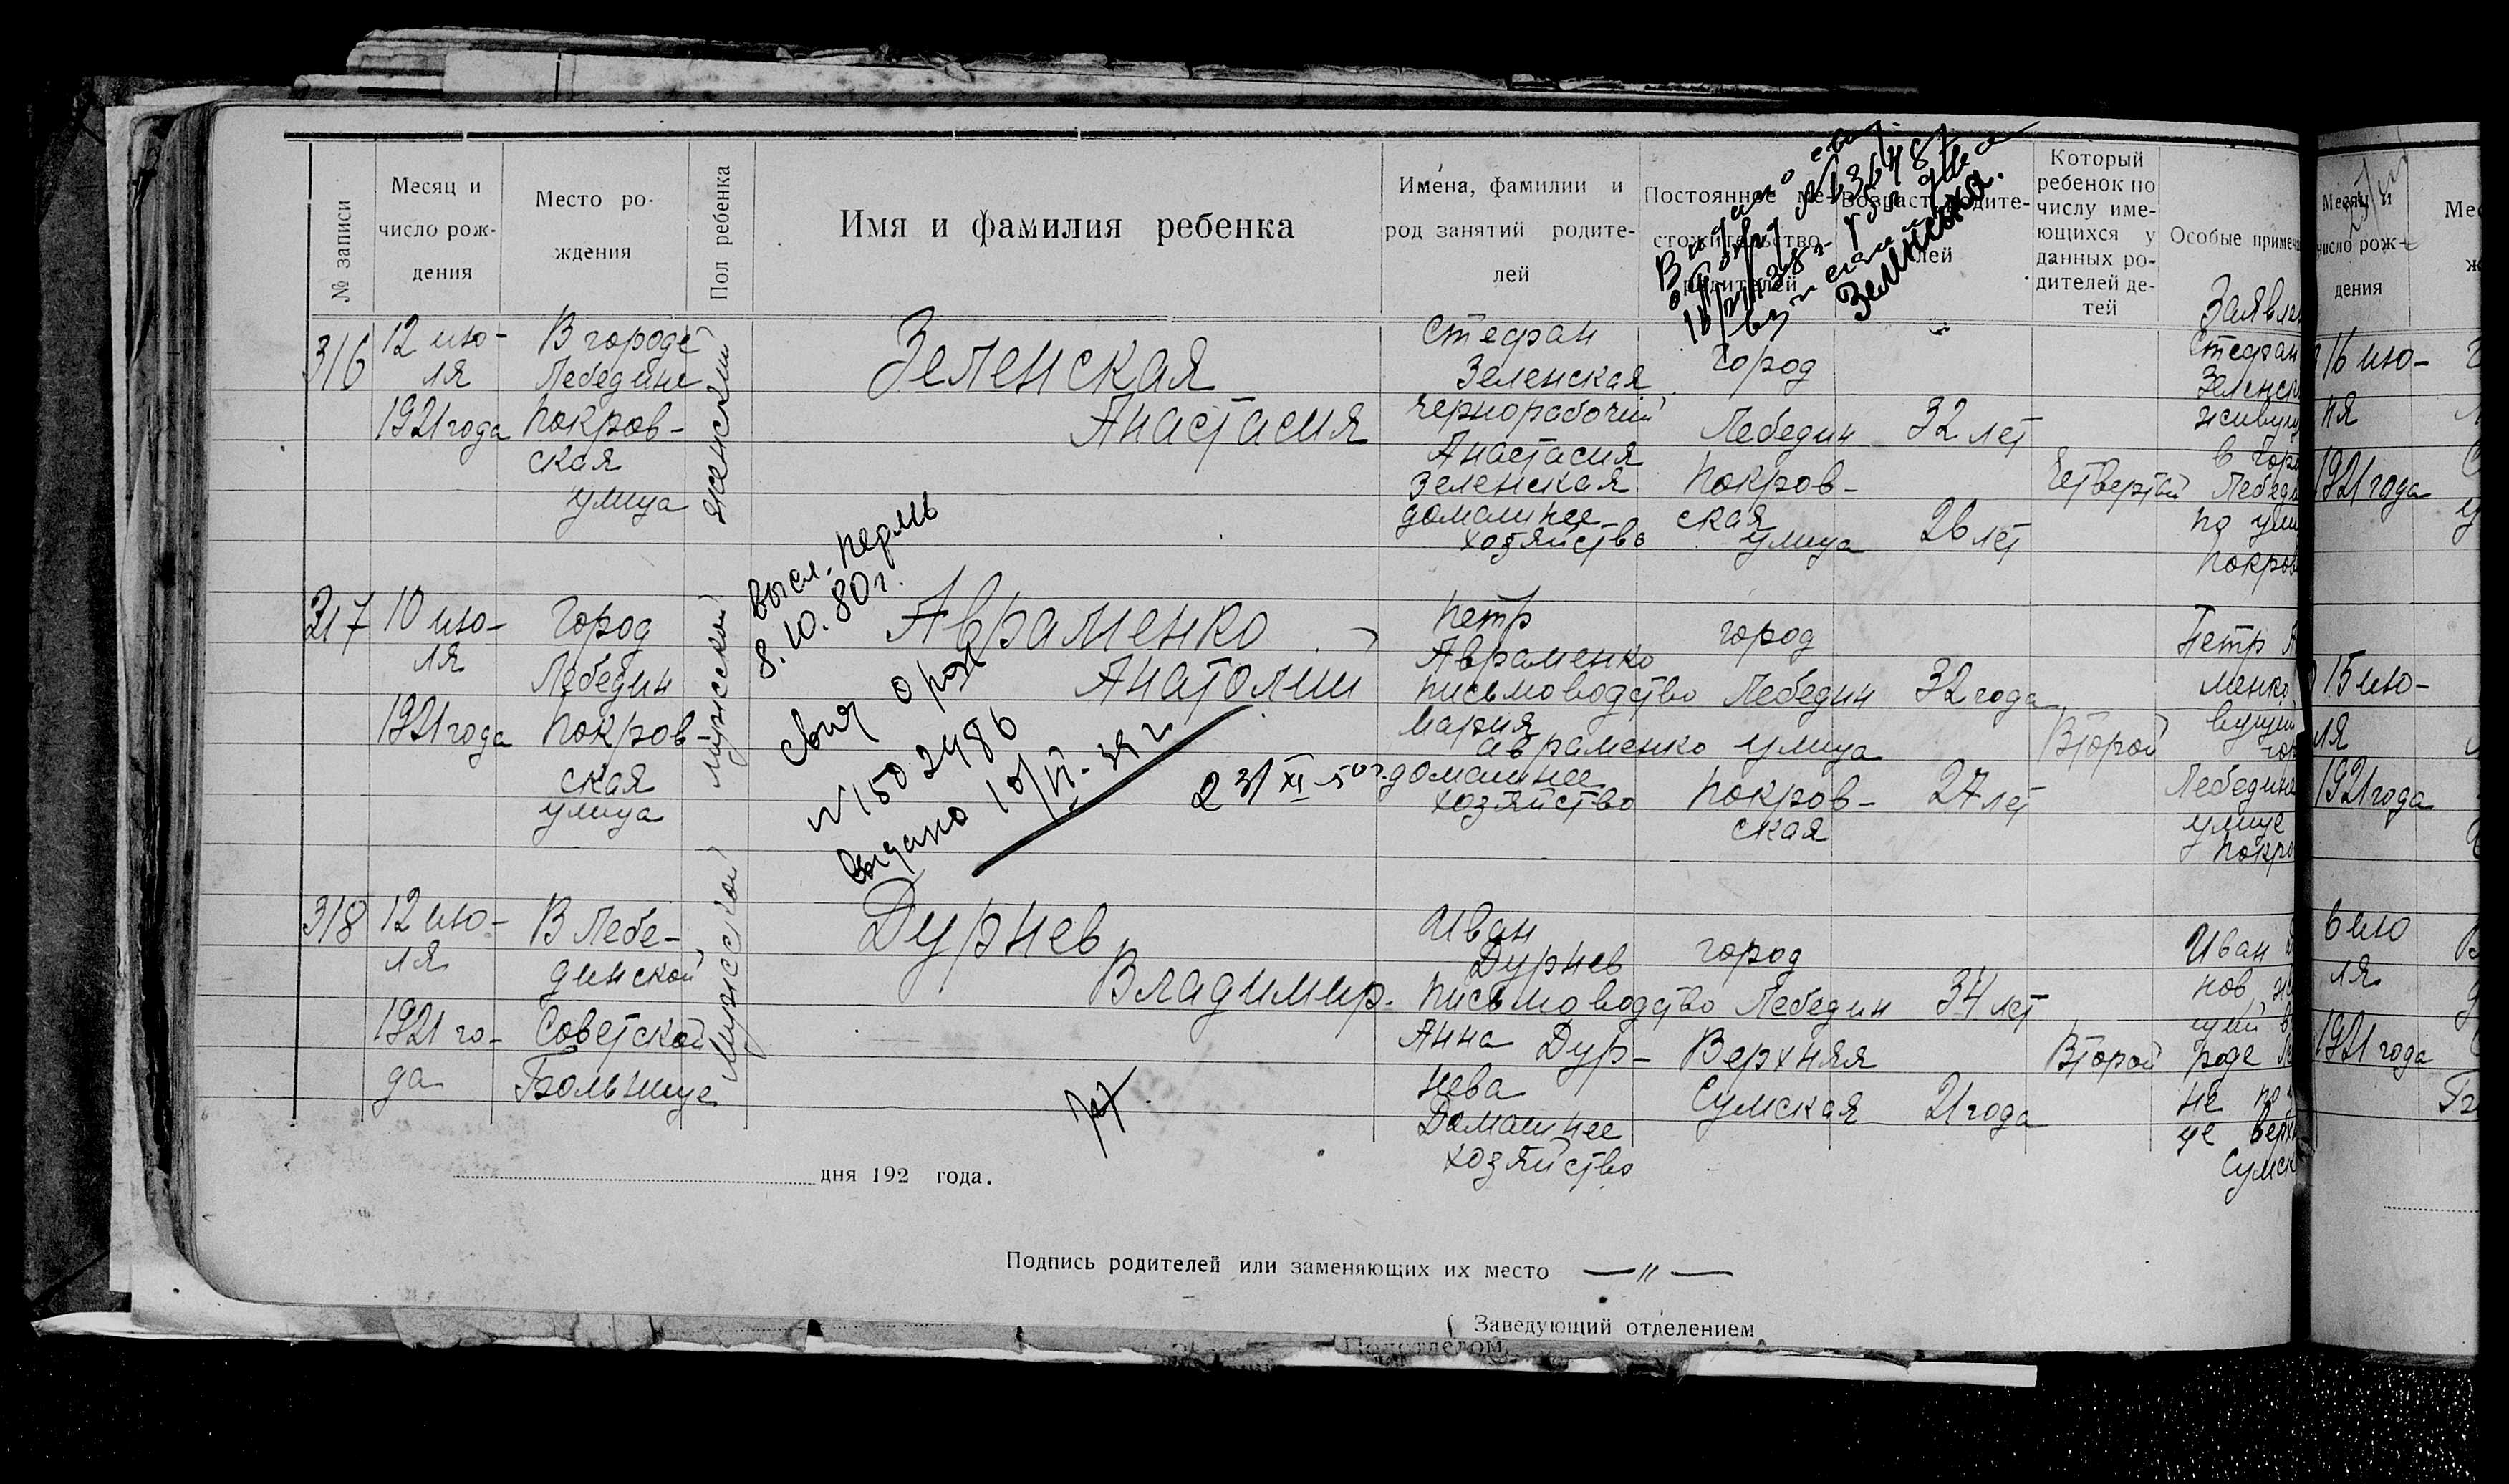 № записи
Месяц и
число рож-
дения
Место ро-
ждения
Пол ребенка
Имя и фамилия ребенка
Имена, фамилии и
род занятий родите-
лей
Постоянное ме-
стожительство
родителей
Возраст родите-
лей
Который
ребенок по
числу име-
ющихся у
данных ро-
дителей де-
тей
Особые примеча
Выдано
Зеленская.
316
12 ию-
ля
1921 года
В городе
Лебедине
Покров-
ская
улица
женский
Зеленская
Анастасия
Стефан
Зеленская
чернорабочий
Анастасия
Зеленская
домашнее
хозяйство
город
Лебедин
Покров-
ская
улица
32 лет
26 лет
Четвертый
Заявлен
Стефан
Зеленск
живущ
в горо
Лебеди
по ули
Покров
317
10 ию-
ля
1921 года
Город
Лебедин
Покров-
ская
улица
мужской
высл. Пермь
8.10.80г.
Авраменко
Анатолий
свид о рож
N150 2486
выдано 10/VI-39 г
2 31 XI 50г.
Петр
Авраменко
письмоводство
Мария
Авраменко
домашнее
хозяйство
город
Лебедин
улица
Покров-
ская
32 года
27 лет
Второй
Петр А
менко
вущий
гор
Лебедине
улице
Покро
318
12 ию-
ля
1921 го-
да
В Лебе-
динской
Советской
Больнице
Мужской
Дурнев
Владимир.
Иван
Дурнев
письмоводство
Анна Дур-
нева
Домашнее
хозяйство
город
Лебедин
Верхняя
Сумская
34 лет
21 года
Второй
Иван Д
нов жи
щий в
роде Ле
не по
це Верх
Сумск
дня 192 года.
Подпись родителей или заменяющих их место —〃—
Заведующий отделением
Подотделом
Месяц и
число рож-
дения
Мес
ж
16 ию-
ля
1921 года
15 ию-
ля
1921 года
6 ию
ля
1921 года